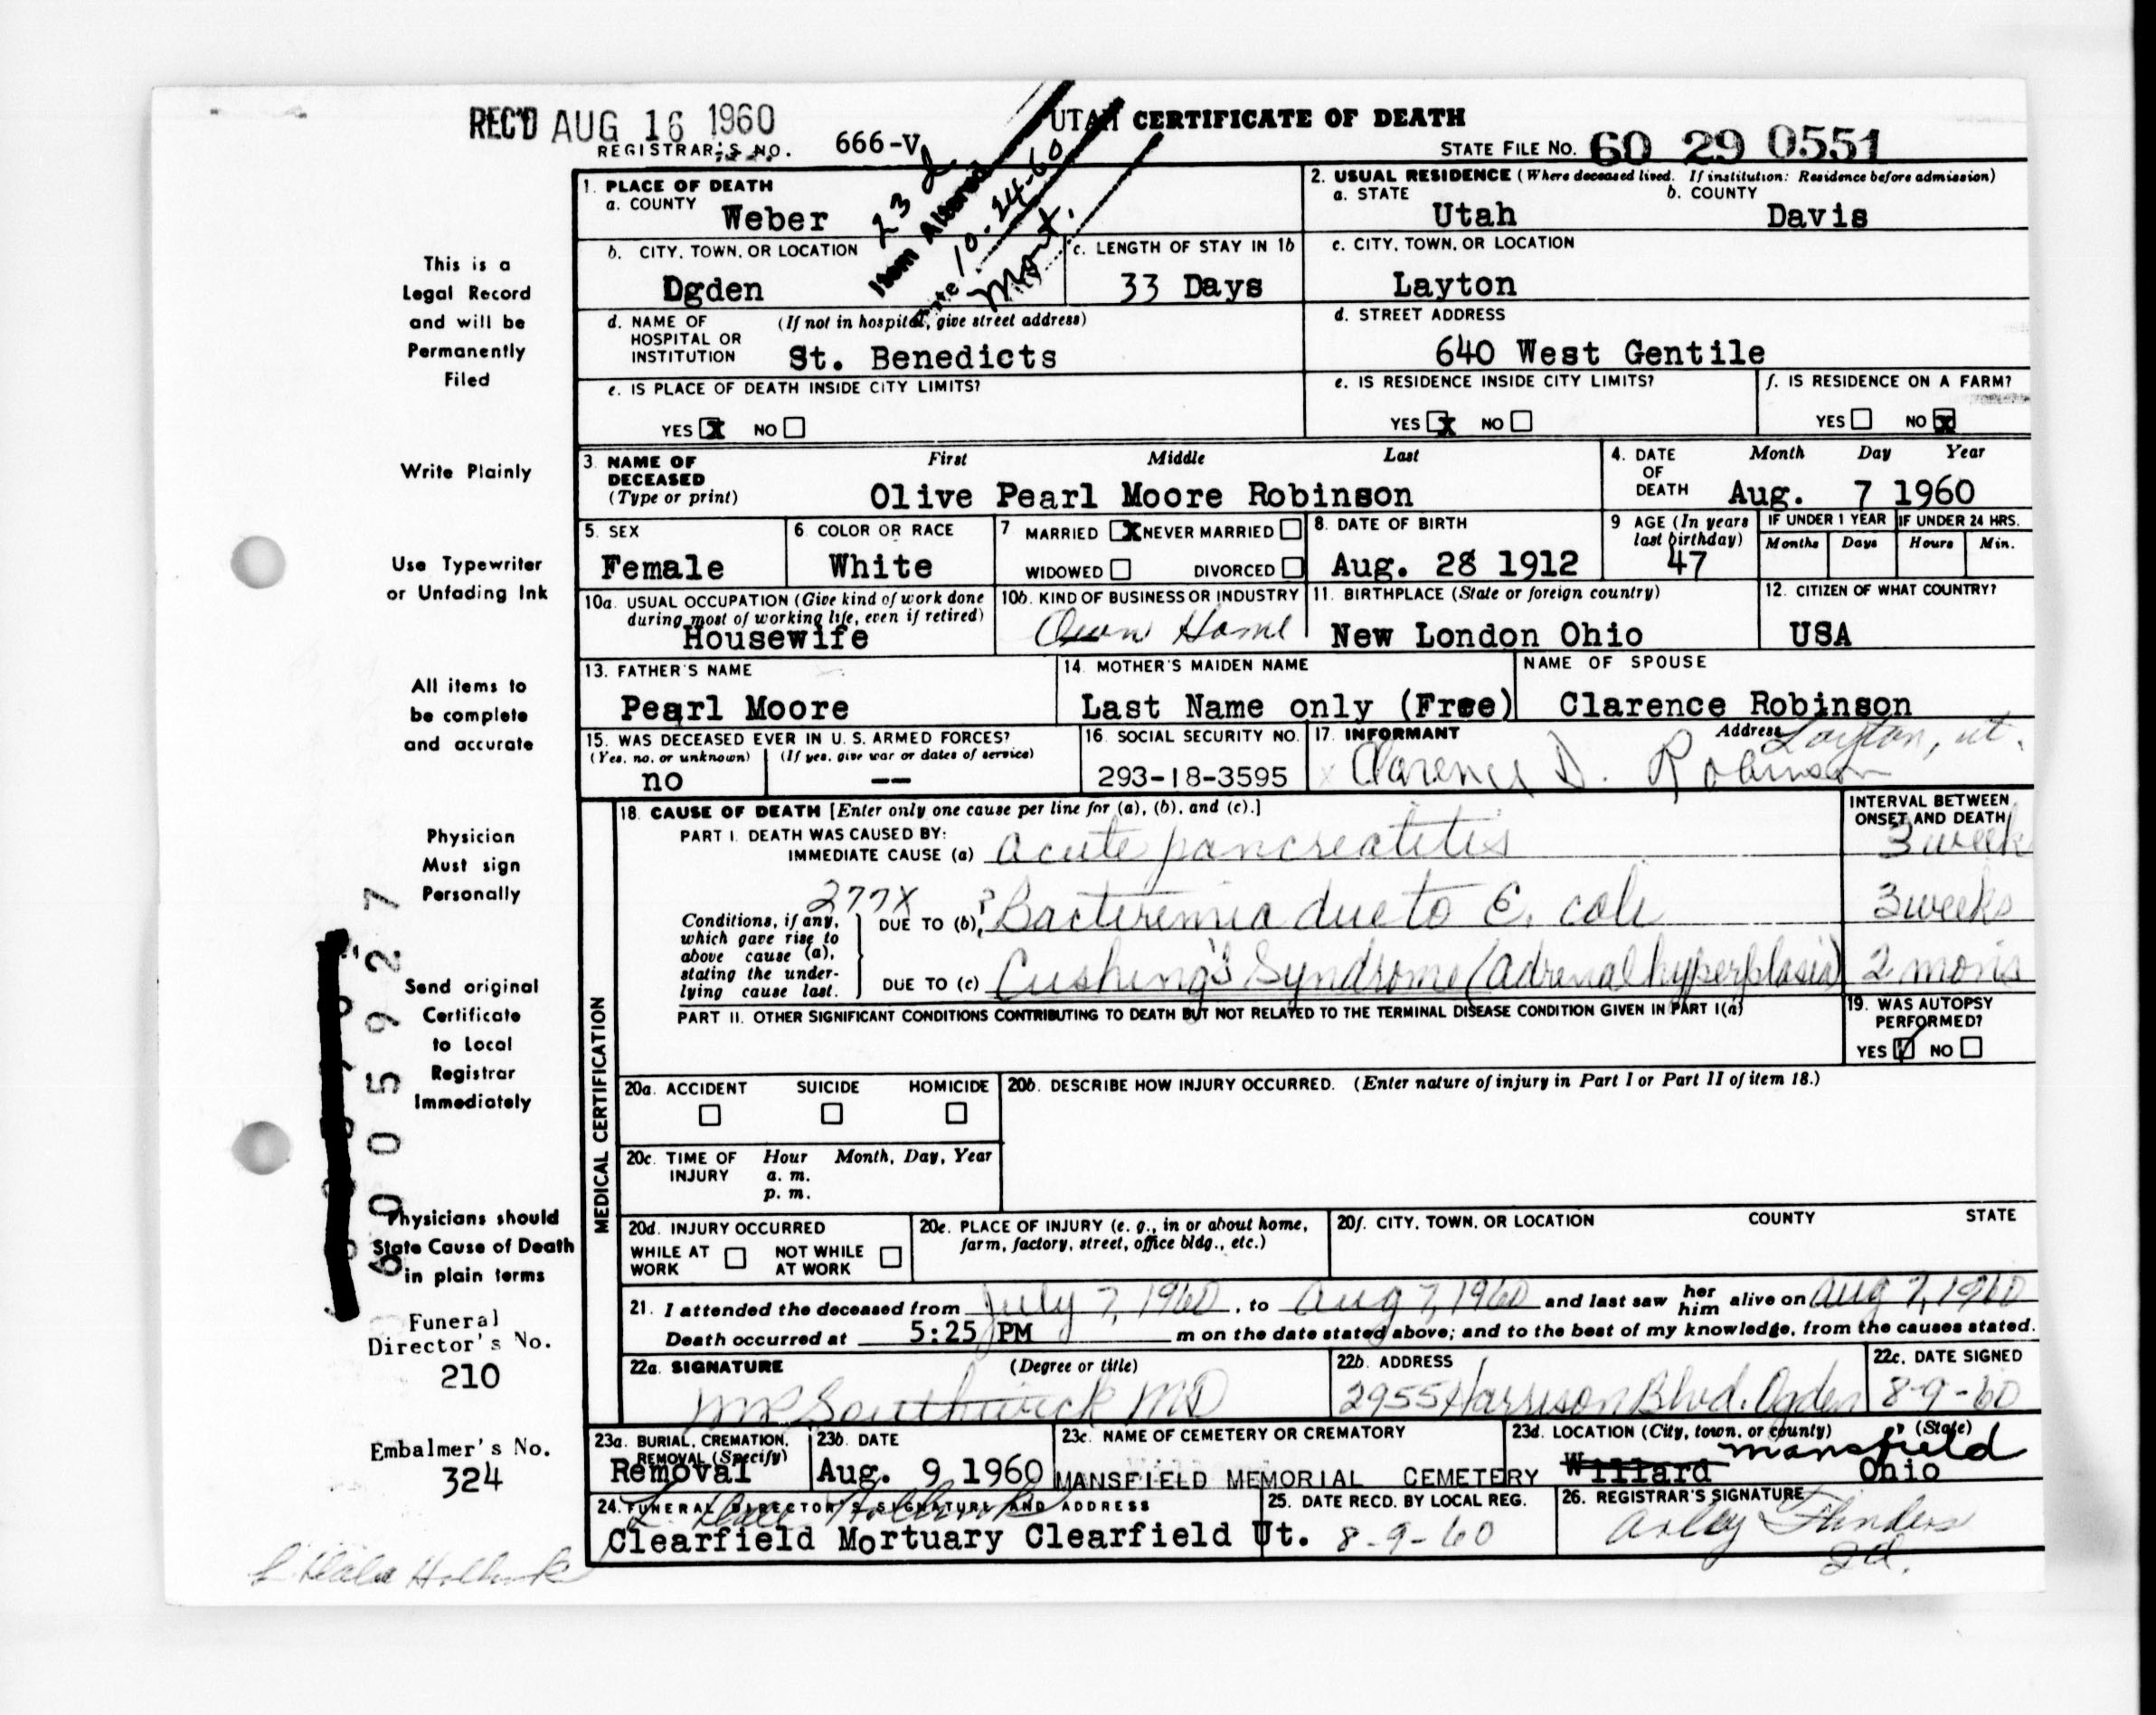 REC'D AUG 16 1960
REGISTRAR'S NO. 666-V
UTAH CERTIFICATE OF DEATH
STATE FILE NO. 60 29 0551
23 d
Item Altered
Date 10-24-60
1. PLACE OF DEATH
a. COUNTY Weber
2. USUAL RESIDENCE (Where deceased lived. If institution: Residence before admission)
a. STATE Utah b. COUNTY Davis
b. CITY, TOWN, OR LOCATION Ogden
c. LENGTH OF STAY IN 1b 33 Days
c. CITY, TOWN, OR LOCATION Layton
d. NAME OF HOSPITAL OR INSTITUTION (If not in hospital, give street address) St. Benedicts
d. STREET ADDRESS 640 West Gentile
e. IS PLACE OF DEATH INSIDE CITY LIMITS?
YES X NO
e. IS RESIDENCE INSIDE CITY LIMITS?
YES X NO
f. IS RESIDENCE ON A FARM?
YES NO X
3. NAME OF DECEASED (Type or print) First Middle Last
Olive Pearl Moore Robinson
4. DATE OF DEATH Month Day Year
Aug. 7 1960
5. SEX Female
6. COLOR OR RACE White
7 MARRIED X NEVER MARRIED
WIDOWED DIVORCED
8. DATE OF BIRTH Aug. 28 1912
9 AGE (In years last birthday) 47
IF UNDER 1 YEAR Months Days
IF UNDER 24 HRS. Hours Min.
10a. USUAL OCCUPATION (Give kind of work done during most of working life, even if retired)
Housewife
10b. KIND OF BUSINESS OR INDUSTRY
Own Home
11. BIRTHPLACE (State or foreign country)
New London Ohio
12. CITIZEN OF WHAT COUNTRY?
USA
13. FATHER'S NAME
Pearl Moore
14. MOTHER'S MAIDEN NAME
Last Name only (Free)
NAME OF SPOUSE
Clarence Robinson
15. WAS DECEASED EVER IN U. S. ARMED FORCES?
(Yes, no, or unknown) (If yes, give war or dates of service)
no --
16. SOCIAL SECURITY NO.
293-18-3595
17. INFORMANT Address
Clarence D. Robinson Layton, ut.
MEDICAL CERTIFICATION
18. CAUSE OF DEATH [Enter only one cause per line for (a), (b), and (c).]
INTERVAL BETWEEN ONSET AND DEATH
PART I. DEATH WAS CAUSED BY:
IMMEDIATE CAUSE (a) acute pancreatitis 3 week
277X
Conditions, if any, which gave rise to above cause (a), stating the underlying cause last.
DUE TO (b) ? Bacteremia due to E. coli 3 weeks
DUE TO (c) Cushing's Syndrome (adrenal hyperplasia) 2 mons
PART II. OTHER SIGNIFICANT CONDITIONS CONTRIBUTING TO DEATH BUT NOT RELATED TO THE TERMINAL DISEASE CONDITION GIVEN IN PART I(a)
19. WAS AUTOPSY PERFORMED?
YES NO
20a. ACCIDENT SUICIDE HOMICIDE
20b. DESCRIBE HOW INJURY OCCURRED. (Enter nature of injury in Part I or Part II of item 18.)
20c. TIME OF INJURY Hour Month, Day, Year
a. m.
p. m.
20d. INJURY OCCURRED
WHILE AT WORK NOT WHILE AT WORK
20e. PLACE OF INJURY (e. g., in or about home, farm, factory, street, office bldg., etc.)
20f. CITY, TOWN, OR LOCATION COUNTY STATE
21. I attended the deceased from July 7, 1960, to Aug 7, 1960 and last saw her him alive on Aug 7, 1960
Death occurred at 5:25 PM m on the date stated above; and to the best of my knowledge, from the causes stated.
22a. SIGNATURE (Degree or title)
Southwick MD
22b. ADDRESS
2955 Harrison Blvd. Ogden
22c. DATE SIGNED
8-9-60
23a. BURIAL, CREMATION, REMOVAL (Specify)
Removal
23b. DATE
Aug. 9 1960
23c. NAME OF CEMETERY OR CREMATORY
MANSFIELD MEMORIAL CEMETERY
23d. LOCATION (City, town, or county) (State)
Willard Mansfield Ohio
24. FUNERAL DIRECTOR'S SIGNATURE AND ADDRESS
L. Dale Holbrook
Clearfield Mortuary Clearfield Ut.
25. DATE RECD. BY LOCAL REG.
8-9-60
26. REGISTRAR'S SIGNATURE
This is a
Legal Record
and will be
Permanently
Filed
Write Plainly
Use Typewriter
or Unfading Ink
All items to
be complete
and accurate
Physician
Must sign
Personally
Send original
Certificate
to Local
Registrar
Immediately
Physicians should
State Cause of Death
in plain terms
60 05927
Funeral
Director's No.
210
Embalmer's No.
324
L. Dale Holbrook